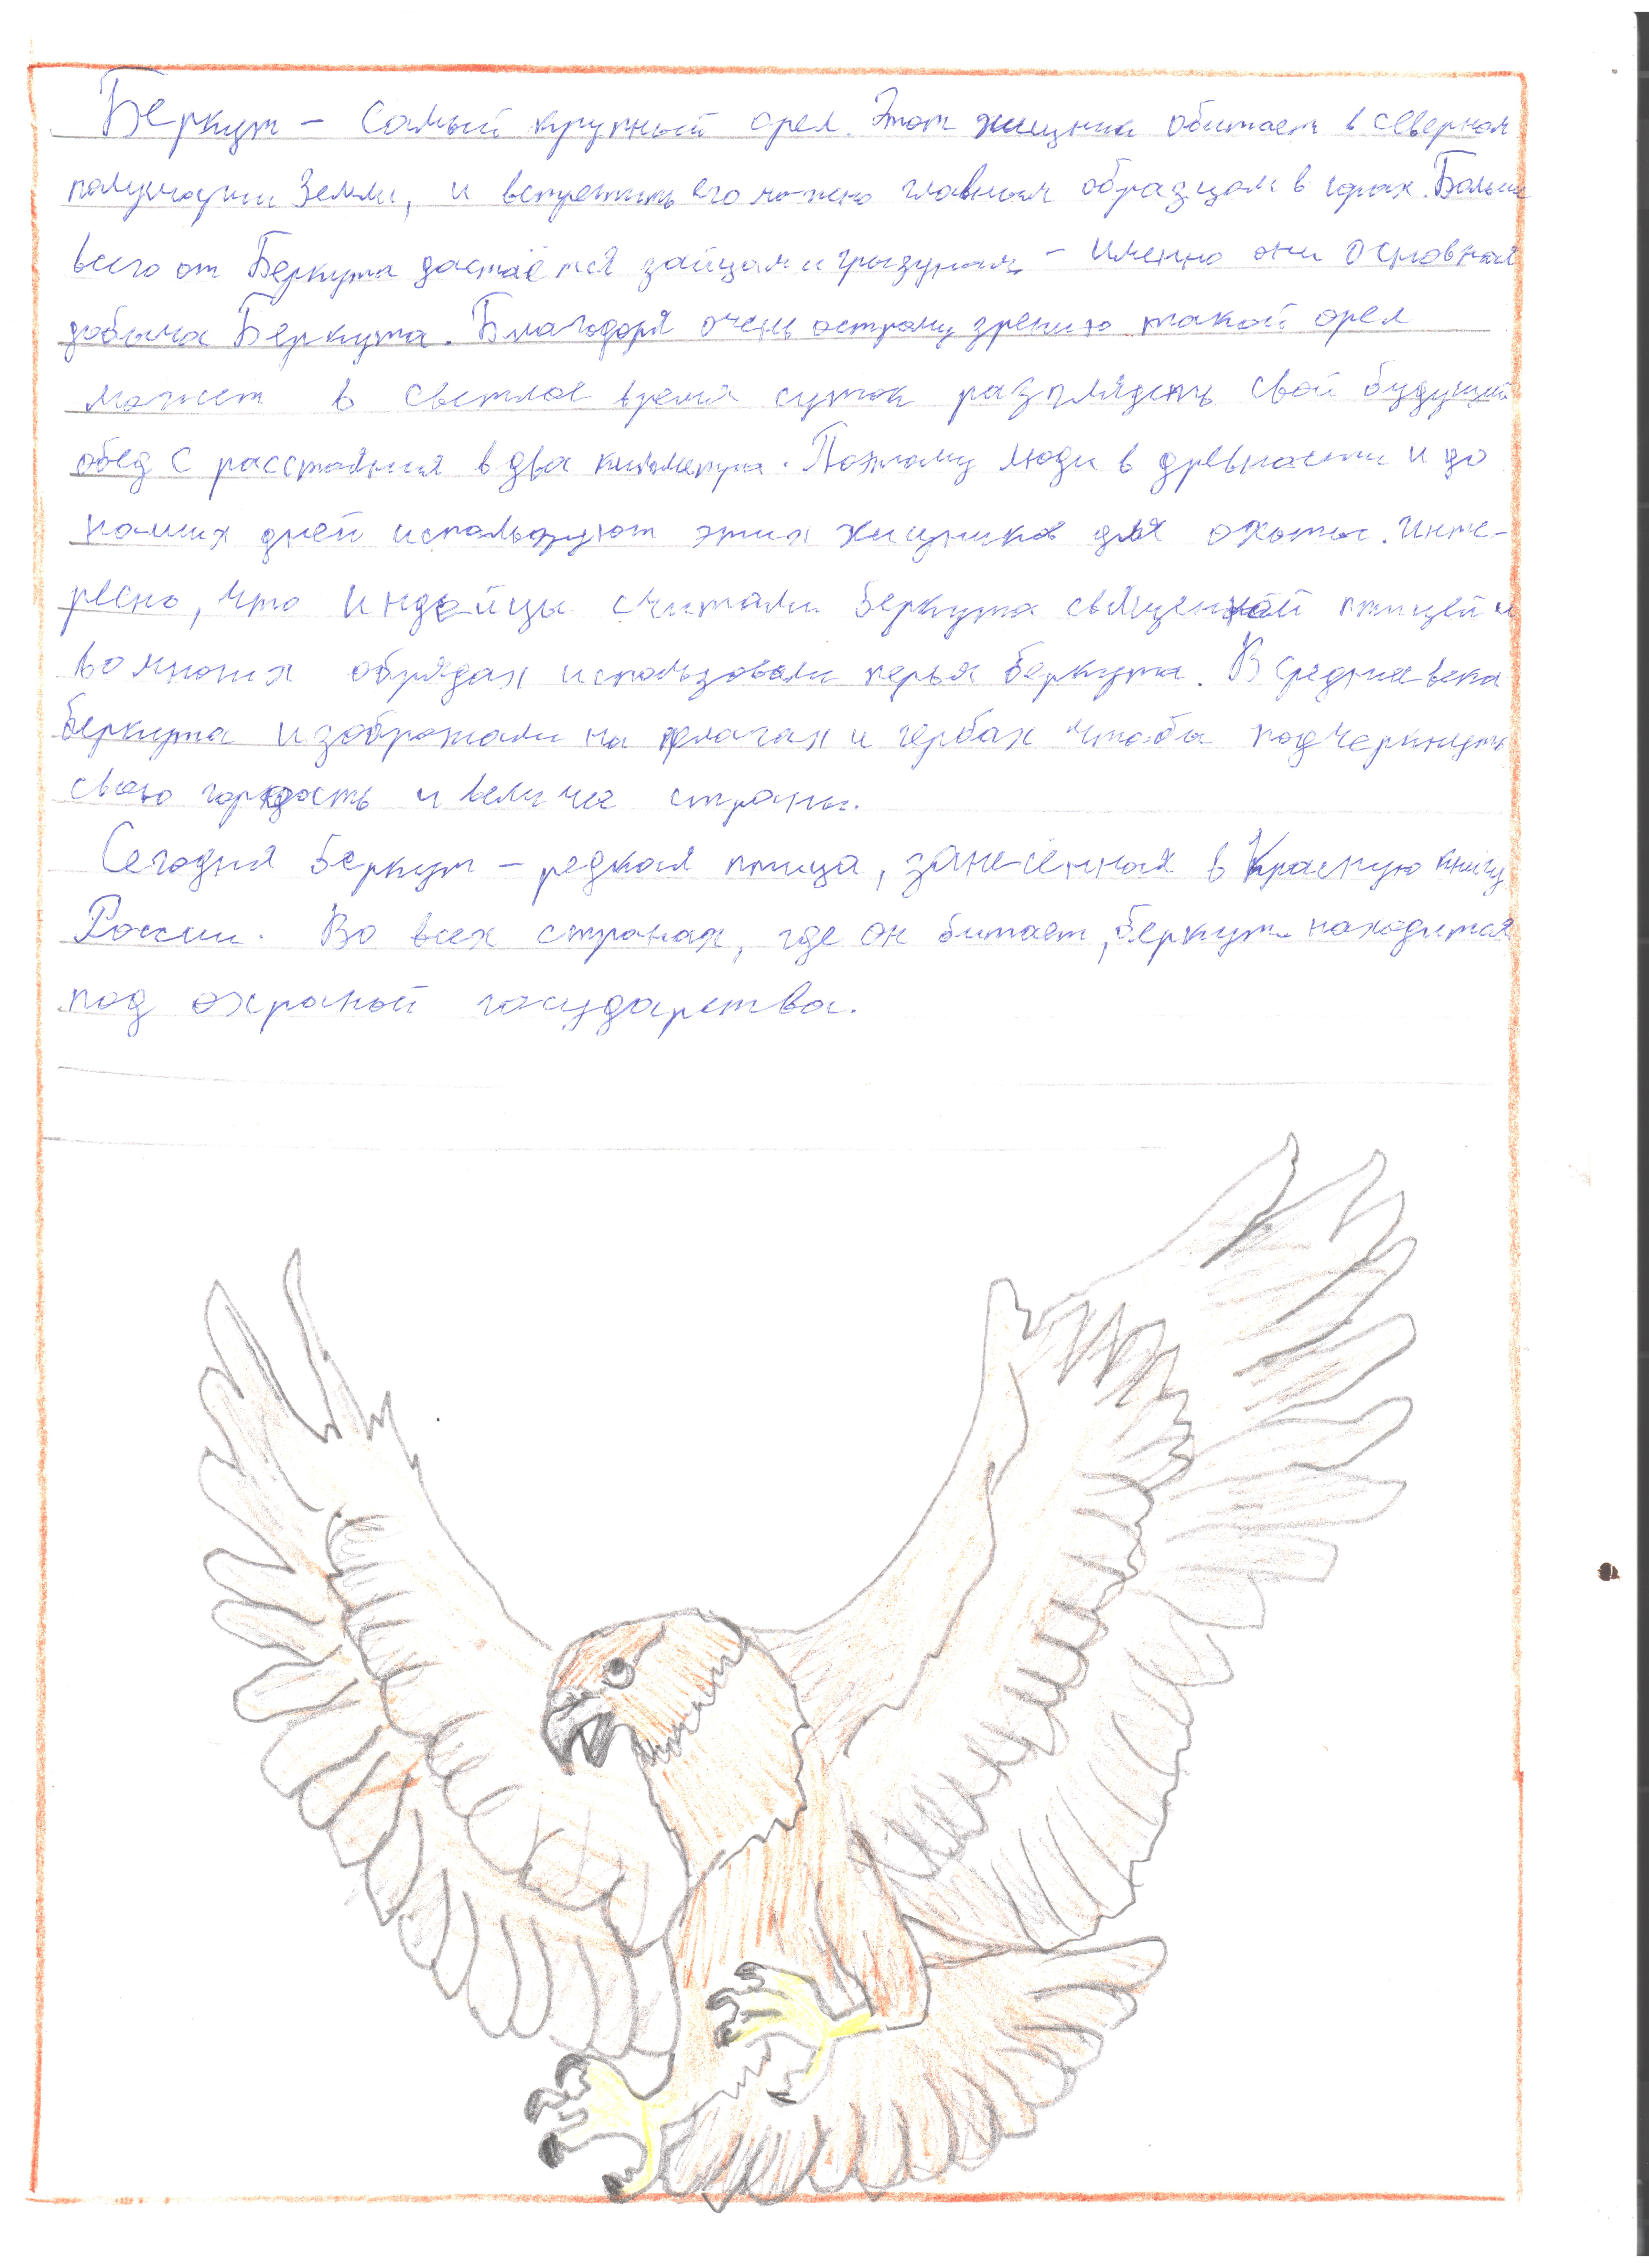 Беркут – самый крупный орел. Этот хищник обитает в северном
полушарии Земли, и встретить его можно главным образцом в горах. Больше
всего от Беркута достаётся зайцам и грызунам – именно они основная
добыча Беркута. Благодаря очень острому зрению такой орел
может в светлое время суток разглядеть свой будущий
обед с расстояния в два километра. Поэтому люди в древности и до
наших дней используют этих хищников для охоты. Инте-
ресно, что индейцы считали беркута священной птицей и
во многих обрядах использовали перья беркута. В средние века
беркута изображали на флагах и гербах чтобы подчеркнуть
свою гордость и величие страны.
Сегодня беркут – редкая птица, занесённая в Красную книгу
России. Во всех странах, где он битает, беркут находится
под охраной государства.